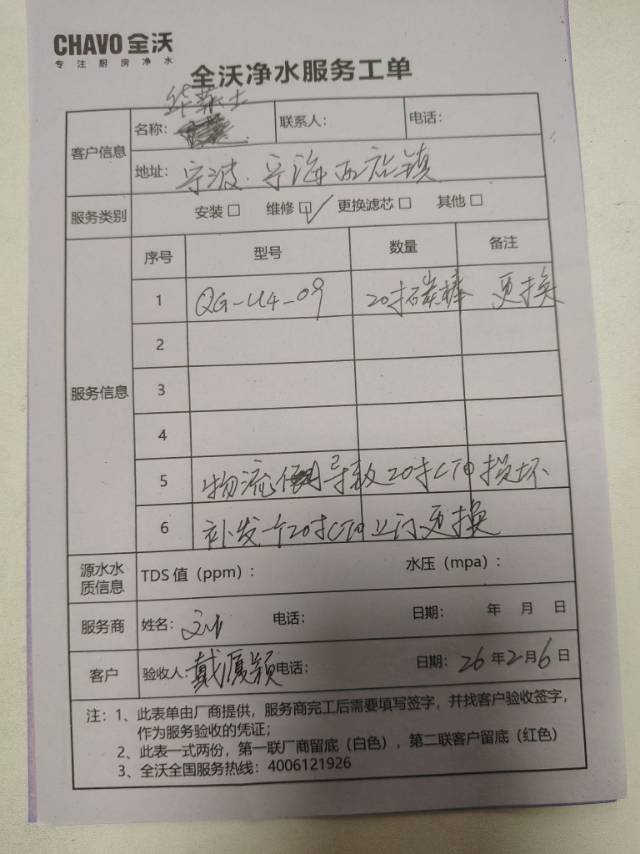 CHAVO 全沃
专注厨房净水
全沃净水服务工单
客户信息
名称: 华莱士
联系人:
电话:
地址: 宁波 宁海西店镇
服务类别
安装□ 维修□√ 更换滤芯□ 其他□
服务信息
序号 型号 数量 备注
1 QG-U4-09 20寸碳棒 更换
2
3
4
5 物流 导致20寸CTO损坏
6 补发一个20寸CTO上门更换
源水水质信息
TDS 值（ppm）: 水压（mpa）:
服务商
姓名: 电话: 日期: 年 月 日
客户
验收人: 戴厦颖 电话: 日期: 26年2月6日
注: 1、此表单由厂商提供，服务商完工后需要填写签字，并找客户验收签字，
作为服务验收的凭证；
2、此表一式两份，第一联厂商留底（白色），第二联客户留底（红色）
3、全沃全国服务热线: 4006121926